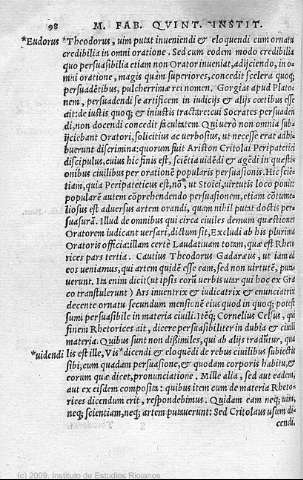 98 M. FAB. QVINT. INSTIT.
*Eudorus *Theodorus, uim putat inueniendi & eloquendi cum ornatu
credibilia in omni oratione. Sed cum eodem modo credibilia
quo persuasibilia etiam non Orator inueniat, adijciendo, in o-
mni oratione, magis quàm superiores, concedit scelera quoq;
persuadētibus, pulcherrimæ rei nomen. Gorgias apud Platoē
nem, persuadendi se artificem in iudicijs & alijs cœtibus esse
ait: de iustis quoq; & iniustis tractare: cui Socrates persuadē
di, non docendi concedit facultatem. Qui uerò non omnia subi
ijciebant Oratori, solicitius ac uerbosius, ut necesse erat adhi
buerunt discrimina: quorum fuit Ariston Critolai Peripatetici
discipulus, cuius hic finis est, sciētia uidēdi & agēdi in quæsti-
onibus ciuilibus per orationē popularis persuasionis. Hic sciē
tiam, quia Peripateticus est, nō, ut Stoici, uirtutis loco ponit:
popularē autem cōprehendendo persuasionem, etiam cōtume-
liosus est aduersus artem orandi, quam nihil putat doctis per
suasurā. Illud de omnibus qui circa ciuiles demum quæstiones
Oratorem iudicant uersari, dictum sit, Excludi ab his plurima
Oratoris officia, illam certè Laudatiuam totam, quæ est Rheto
rices pars tertia. Cautius Theodorus Gadareus, ut iam ad
eos ueniamus, qui artem quidē esse eam, sed non uirtutē, puta-
uerunt. Ita enim dicit (ut ipsis eorū uerbis utar qui hoc ex Græ
co transtulerunt) Ars inuentrix & iudicatrix & enunciatrix
decente ornatu secundum mensionē eius quod in quoq; potest
sumi persuasibile in materia ciuili. Itēq; Cornelius Celsus, qui
finem Rhetorices ait, dicere persuasibiliter in dubia & ciuili
materia. Quibus sunt non dißimiles, qui ab alijs traduntur, qua
*uidendi lis est ille, Vis *dicendi & eloquēdi de rebus ciuilibus subiectis
sibi, cum quadam persuasione, & quodam corporis habitu, &
eorum quæ dicet, pronunciatione. Mille alia, sed aut eadem,
aut ex eisdem composita: quibus item cum de materia Rheto-
rices dicendum erit, respondebimus. Quidam eam neq; uim,
neq; scientiam, neq; artem putauerunt: Sed Critolaus usum di-
cendi,
(c) 2009, Instituto de Estudios Riojanos